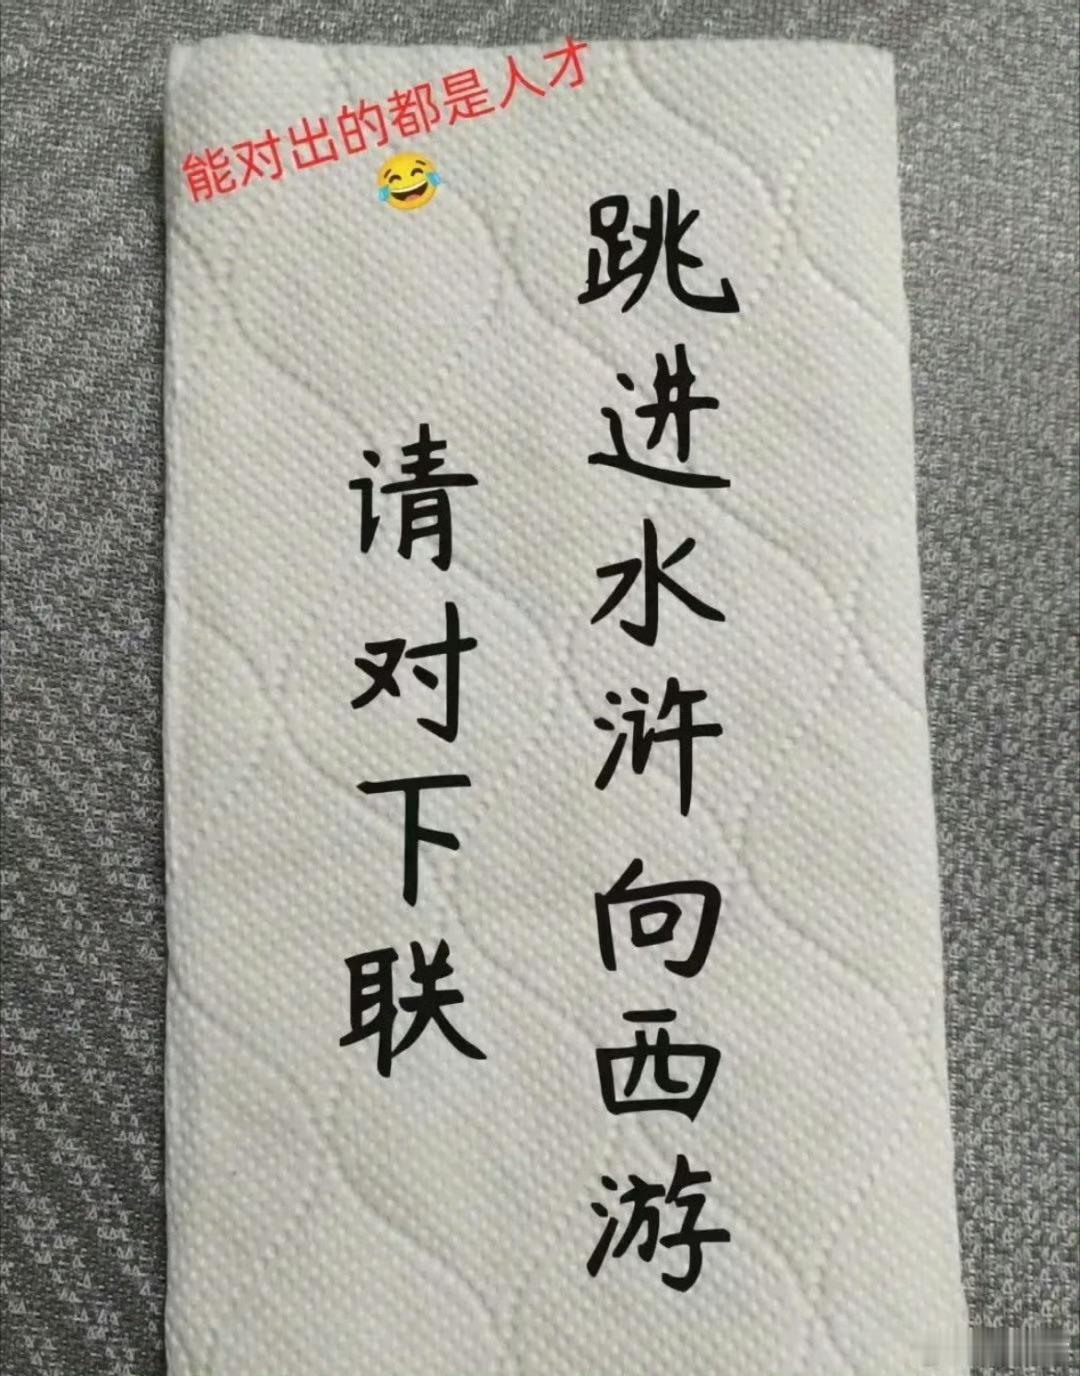 能对出的都是人才
跳进水浒向西游
请对下联